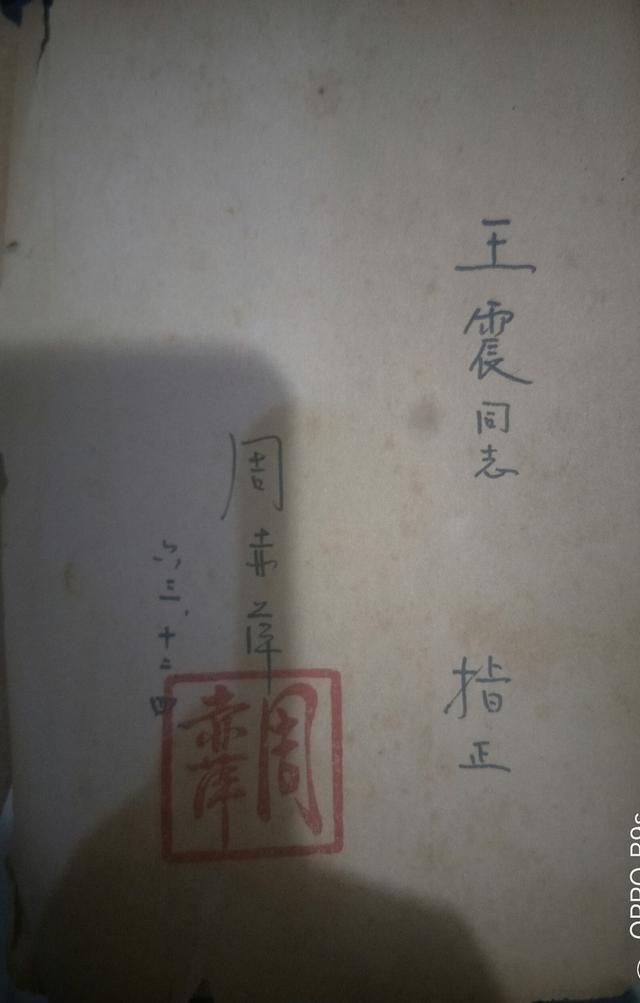 王震同志 指正
周赤萍
六三.十二.四
周赤萍
OPPO R9s